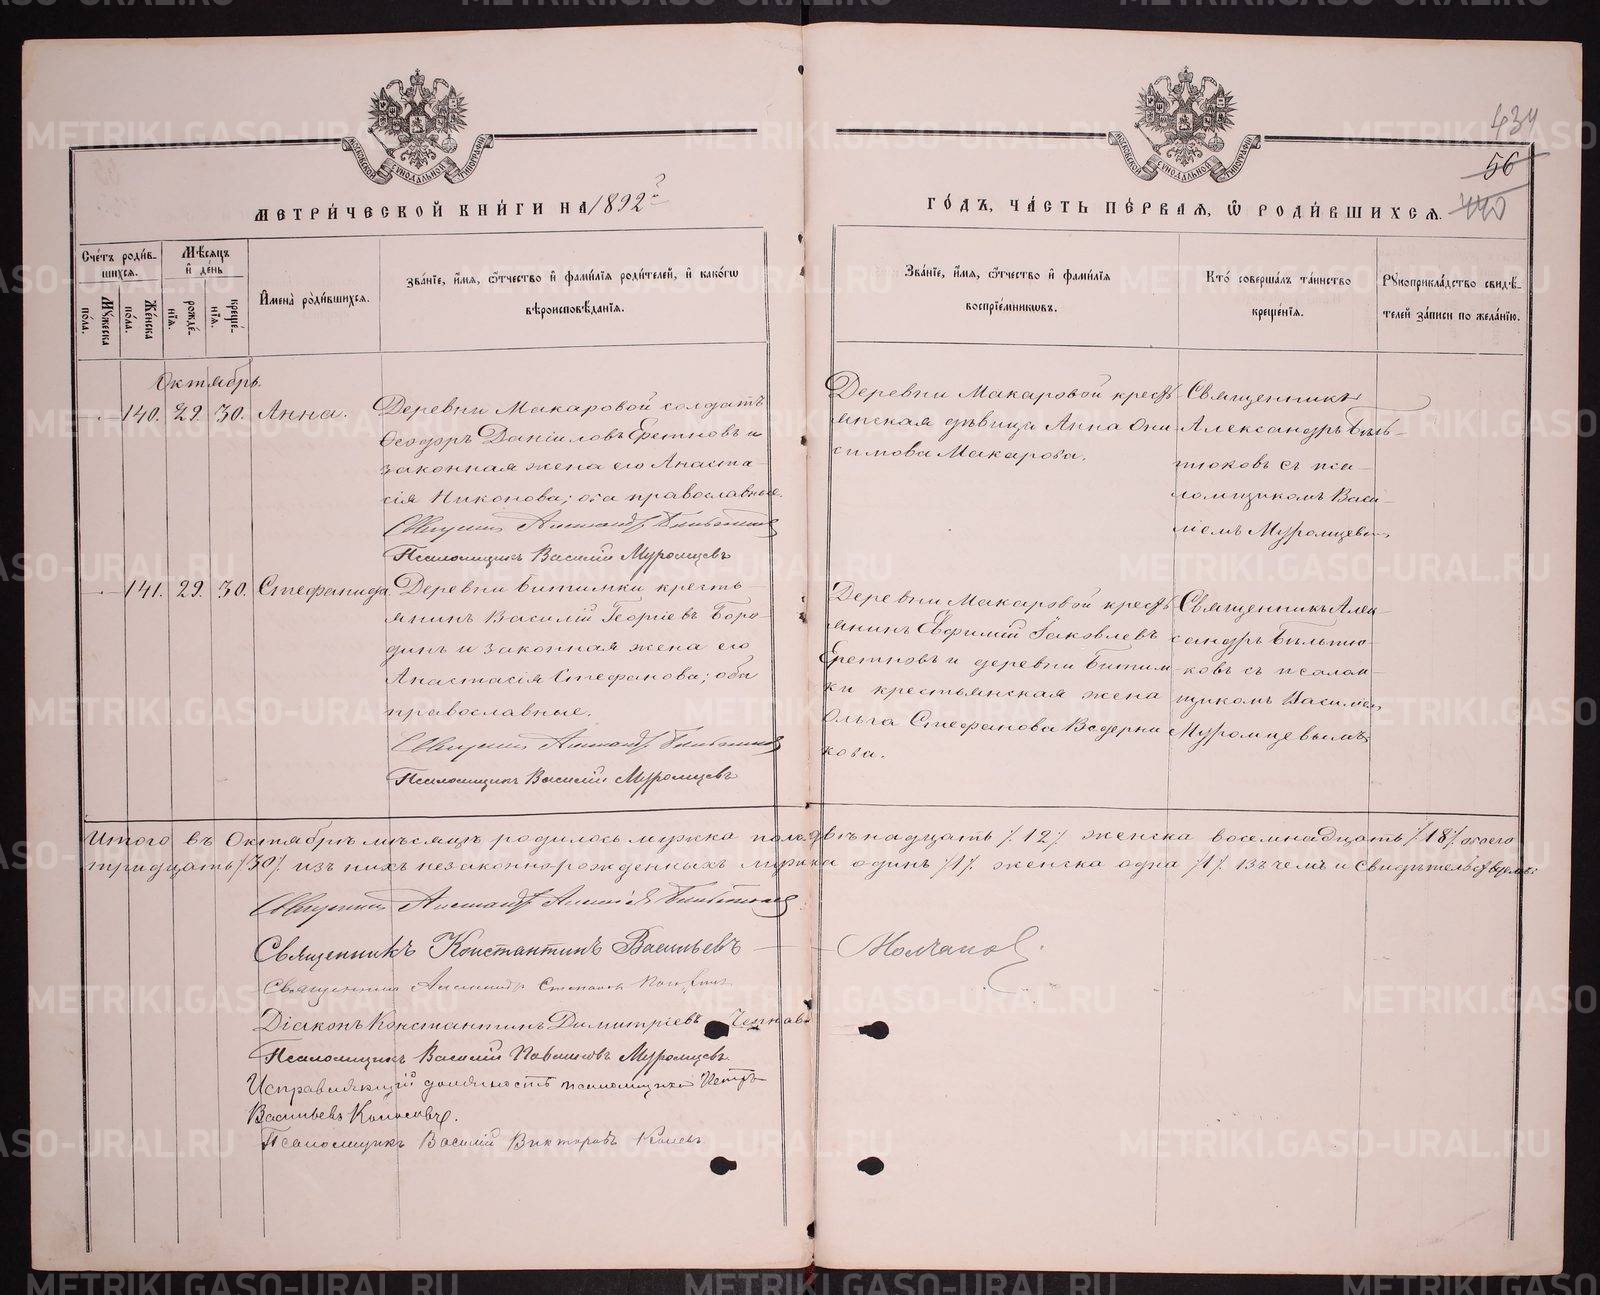 434
56
440
МЕТРИ́ЧЕСКОЙ КНИ́ГИ НА 1892й
ГО́ДЪ, ЧА́СТЬ ПЕ́РВАЯ, Ѿ РОДИ́ВШИХСЯ.
Сче́тъ роди́в-
шихся.
Му́жеска
по́ла.
Же́нска
по́ла.
Мѣ́сяцъ
и҆ де́нь
рожде́-
нїя.
креще́-
нїя.
И҆мена̀ роди́вшихся.
Зва́нїе, и҆́мя, ѻ҆́тчество и҆ фами́лїя роди́телей, и҆ како́гѡ
вѣроисповѣ́данїя.
Зва́нїе, и҆́мя, ѻ҆́тчество и҆ фами́лїя
воспрїе́мникѡвъ.
Кто̀ соверша́лъ та́инство
креще́нїя.
Рукоприкла́дство свидѣ́-
телей за́писи по жела́нїю.
Октябрь.
140. 29. 30. Анна.
Деревни Макаровой солдатъ
Ѳеодоръ Данiиловъ Еретновъ и
законная жена его Анаста-
сiя Никонова; оба православные.
Священникъ Александръ Бѣльтюковъ
Псаломщикъ Василiй Муромцевъ
Деревни Макаровой кресть-
янская дѣвица Анна Они-
симова Макарова.
Священникъ
Александръ Бѣль-
тюковъ съ пса-
ломщикомъ Васи-
лiемъ Муромцевымъ
141. 29. 30. Стефанида
Деревни Битимки кресть-
янинъ Василiй Георгiевъ Боро-
динъ и законная жена его
Анастасiя Стефанова; оба
православные.
Священникъ Александръ Бѣльтюковъ
Псаломщикъ Василiй Муромцевъ
Деревни Макаровой кресть-
янинъ Евфимiй Iаковлевъ
Еретновъ и деревни Битим-
ки крестьянская жена
Ольга Стефанова Ведерни-
кова.
Священникъ Алек-
сандръ Бѣльтю-
ковъ съ псалом-
щикомъ Василiем
Муромцевымъ
Итого въ Октябрѣ мѣсяцѣ родилось мужска пола двѣнадцать /12/ женска восемнадцать /18/ обоего
тридцать /30/ изъ нихъ незаконнорожденныхъ мужска одинъ /1/ женска одна /1/. Въ чемъ и свидѣтельствуемъ:
Священникъ Александръ Алексiевъ Бѣльтюковъ
Священникъ Константинъ Васильевъ Молчановъ.
Священникъ Александръ Степановъ
Дiаконъ Константинъ Димитрiевъ Чернавинъ
Псаломщикъ Василiй Павловъ Муромцевъ
Исправляющiй должность псаломщика Петръ
Васильевъ Колосовъ.
Псаломщикъ Василiй Викторовъ